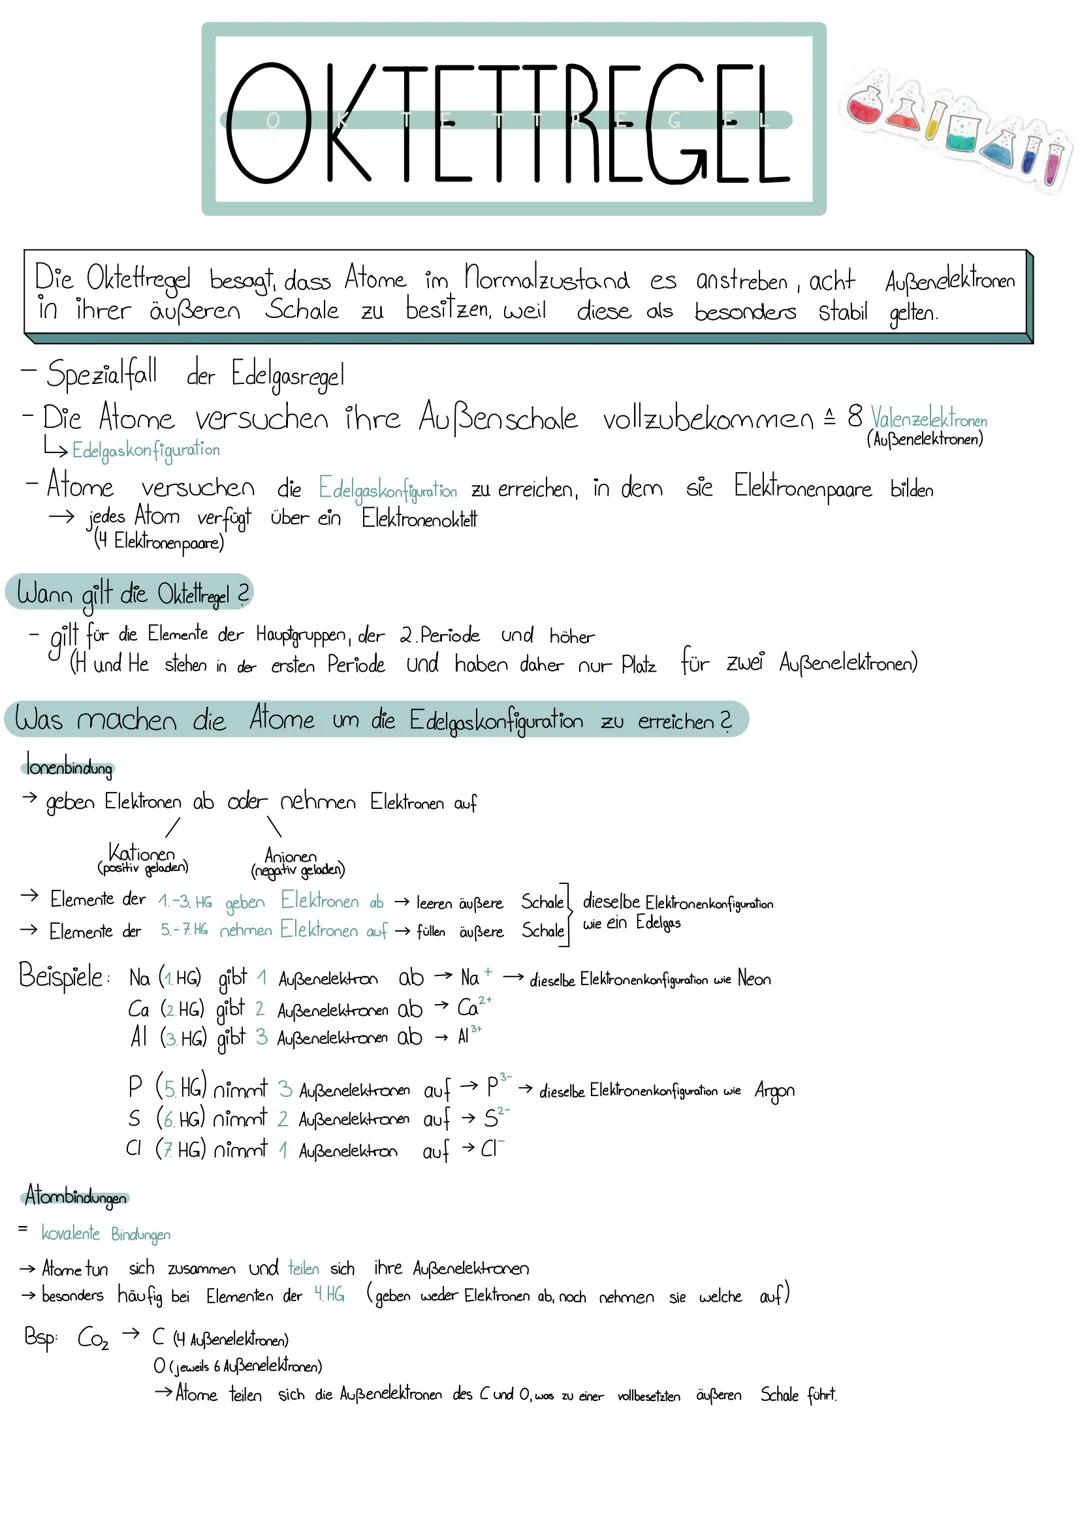 OKTETTREGEL
OKTETTREGEL
Die Oktettregel besagt, dass Atome im Normalzustand es anstreben, acht Außenelektronen
in ihrer äußeren Schale zu besitzen, weil diese als besonders stabil gelten.
- Spezialfall der Edelgasregel
- Die Atome versuchen ihre Außenschale vollzubekommen ≙ 8 Valenzelektronen
(Außenelektronen)
↳ Edelgaskonfiguration
- Atome versuchen die Edelgaskonfiguration zu erreichen, in dem sie Elektronenpaare bilden
→ jedes Atom verfügt über ein Elektronenoktett
(4 Elektronenpaare)
Wann gilt die Oktettregel?
- gilt für die Elemente der Hauptgruppen, der 2.Periode und höher
(H und He stehen in der ersten Periode und haben daher nur Platz für zwei Außenelektronen)
Was machen die Atome um die Edelgaskonfiguration zu erreichen?
Ionenbindung
→ geben Elektronen ab oder nehmen Elektronen auf
Kationen Anionen
(positiv geladen) (negativ geladen)
→ Elemente der 1.-3. HG geben Elektronen ab → leeren äußere Schale
→ Elemente der 5.-7. HG nehmen Elektronen auf → füllen äußere Schale
dieselbe Elektronenkonfiguration
wie ein Edelgas
Beispiele: Na (1. HG) gibt 1 Außenelektron ab → Na⁺ → dieselbe Elektronenkonfiguration wie Neon
Ca (2. HG) gibt 2 Außenelektronen ab → Ca²⁺
Al (3. HG) gibt 3 Außenelektronen ab → Al³⁺
P (5. HG) nimmt 3 Außenelektronen auf → P³⁻ → dieselbe Elektronenkonfiguration wie Argon
S (6. HG) nimmt 2 Außenelektronen auf → S²⁻
Cl (7. HG) nimmt 1 Außenelektron auf → Cl⁻
Atombindungen
= kovalente Bindungen
→ Atome tun sich zusammen und teilen sich ihre Außenelektronen
→ besonders häufig bei Elementen der 4. HG (geben weder Elektronen ab, noch nehmen sie welche auf)
Bsp: Co₂ → C (4 Außenelektronen)
O (jeweils 6 Außenelektronen)
→ Atome teilen sich die Außenelektronen des C und O, was zu einer vollbesetzten äußeren Schale führt.